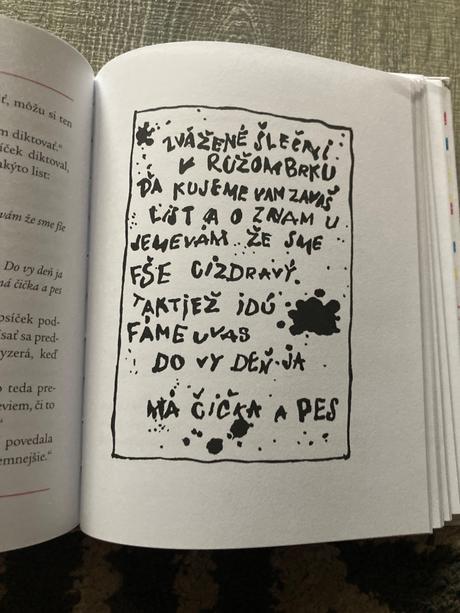 ť, môžu si ten
m diktovať.“
íček diktoval,
akýto list:
vám že sme fše
Do vy deň ja
ná čička a pes
osíček pod-
ísať sa pred-
yzerá, keď
o teda pre-
eviem, či to
povedala
emnejšie.“
ZVÁŽENÉ ŠLEČNI
V RUŽOMBRKU
ĎA KUJEME VAM ZAVAŠ
LIST A O ZNAM U
JEMEVÁM ŽE SME
FŠE CIZDRAVÝ.
TAKTIEŽ IDÚ
FÁME U VAS
DO VY DEŇ JA
MÁ ČIČKA A PES